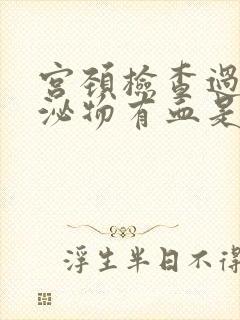 宮頚檢查過
泌物有血是
浮生半日不得